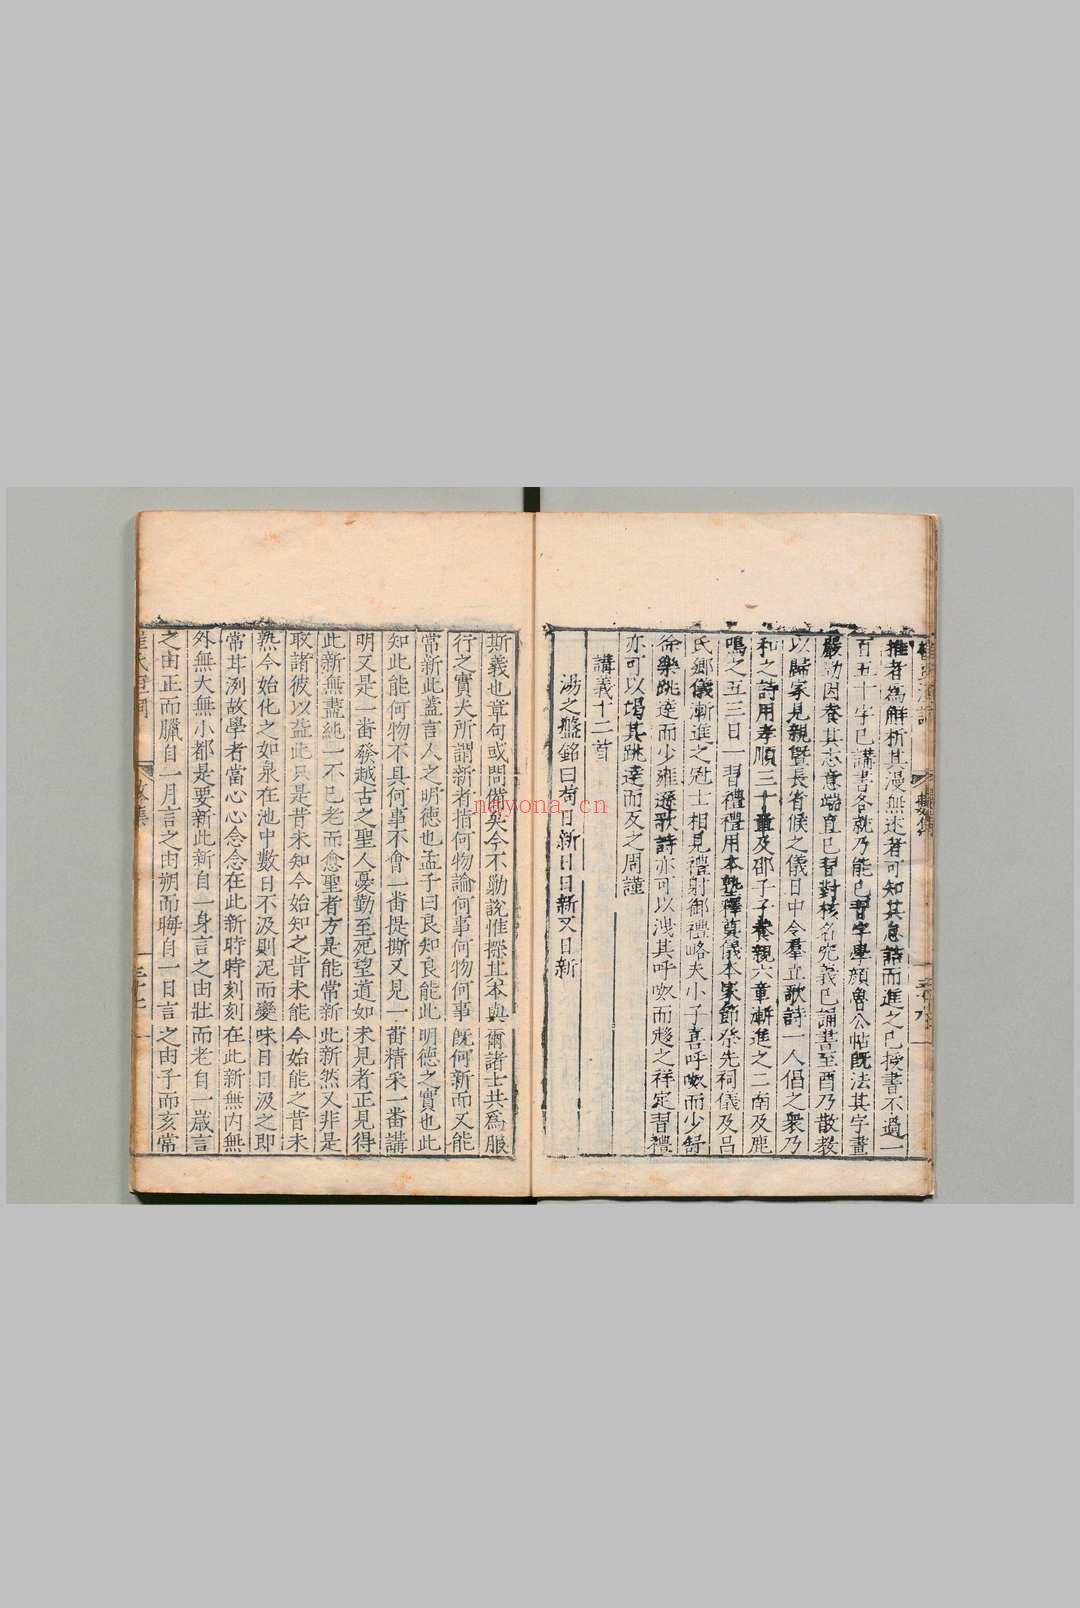 推者為解析其漫無述者可知其怠詩而進之已授書不過一
百五十字已講書各就乃能已習字學顏魯公帖旣法其字畫
嚴勁因養其志意端直已習對核名究義已誦書至酉乃散教
以歸家見親暨長者候之儀日中令羣立歌詩一人倡之衆乃
和之詩用孝順三十章及邵子孝親六章漸進之二南及鹿
鳴之五三日一習禮禮用本塾釋奠儀本家節祭先祠儀及呂
氏鄉儀漸進之冠士相見禮射御禮略夫小子喜呼呶而少舒
徐樂跳達而少雍遜歌詩亦可以洩其呼呶而趍之祥定習禮
亦可以堨其跳達而友之周謹
講義十二首
湯之盤銘曰苟日新日日新又日新
斯義也章句或問備矣今不勦說惟探其本與爾諸士共為服
行之實夫所謂新者指何物論何事何物何事旣何新而又能
常新此蓋言人之明德也孟子曰良知良能此明德之實也此
知此能何物不具何事不會一畨提撕又見一畨精采一畨講
明又是一畨發越古之聖人憂勤至死望道如未見者正見得
此新無盡純一不已老而愈聖者方是能常新此新然又非是
取諸彼以益此只是昔未知今始知之昔未能今始能之昔未
熟今始化之如泉在池中數日不汲則泥而變味日日汲之即
常甘洌故學者當心心念念在此新時時刻刻在此新無內無
外無大無小都是要新此新自一身言之由壯而老自一歲言
之由正而臘自一月言之由朔而晦自一日言之由子而亥常
nayona.cn